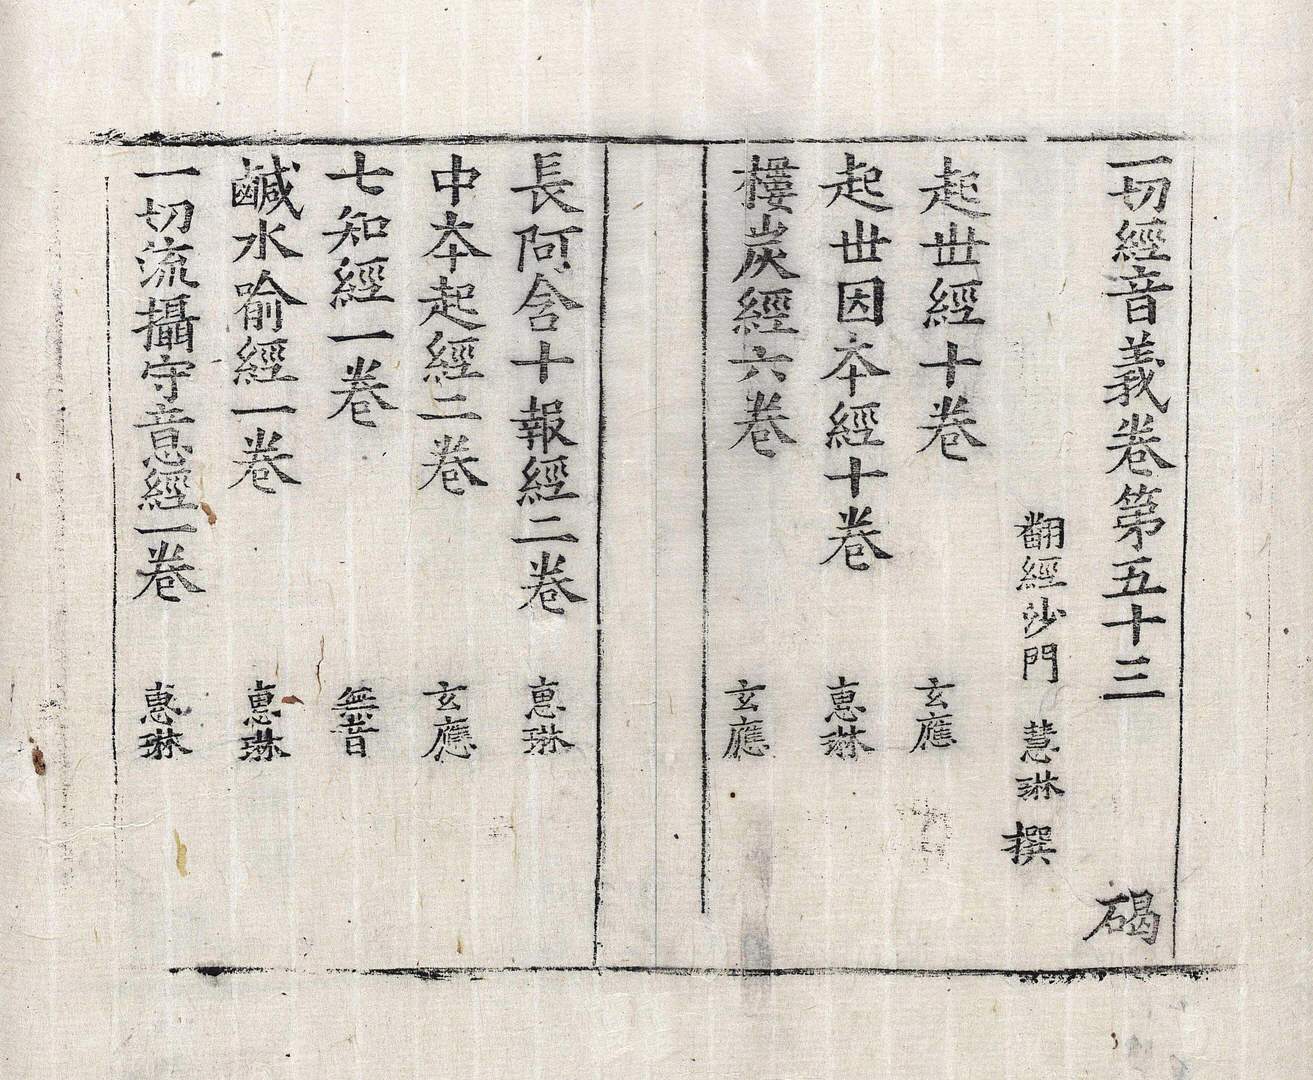 一切經音義卷第五十三 碣
翻經沙門 慧琳 撰
起世經十卷 玄應
起世因本經十卷 惠琳
樓炭經六卷 玄應
長阿含十報經二卷 惠琳
中本起經二卷 玄應
七知經一卷 無音
鹹水喻經一卷 惠琳
一切流攝守意經一卷 惠琳